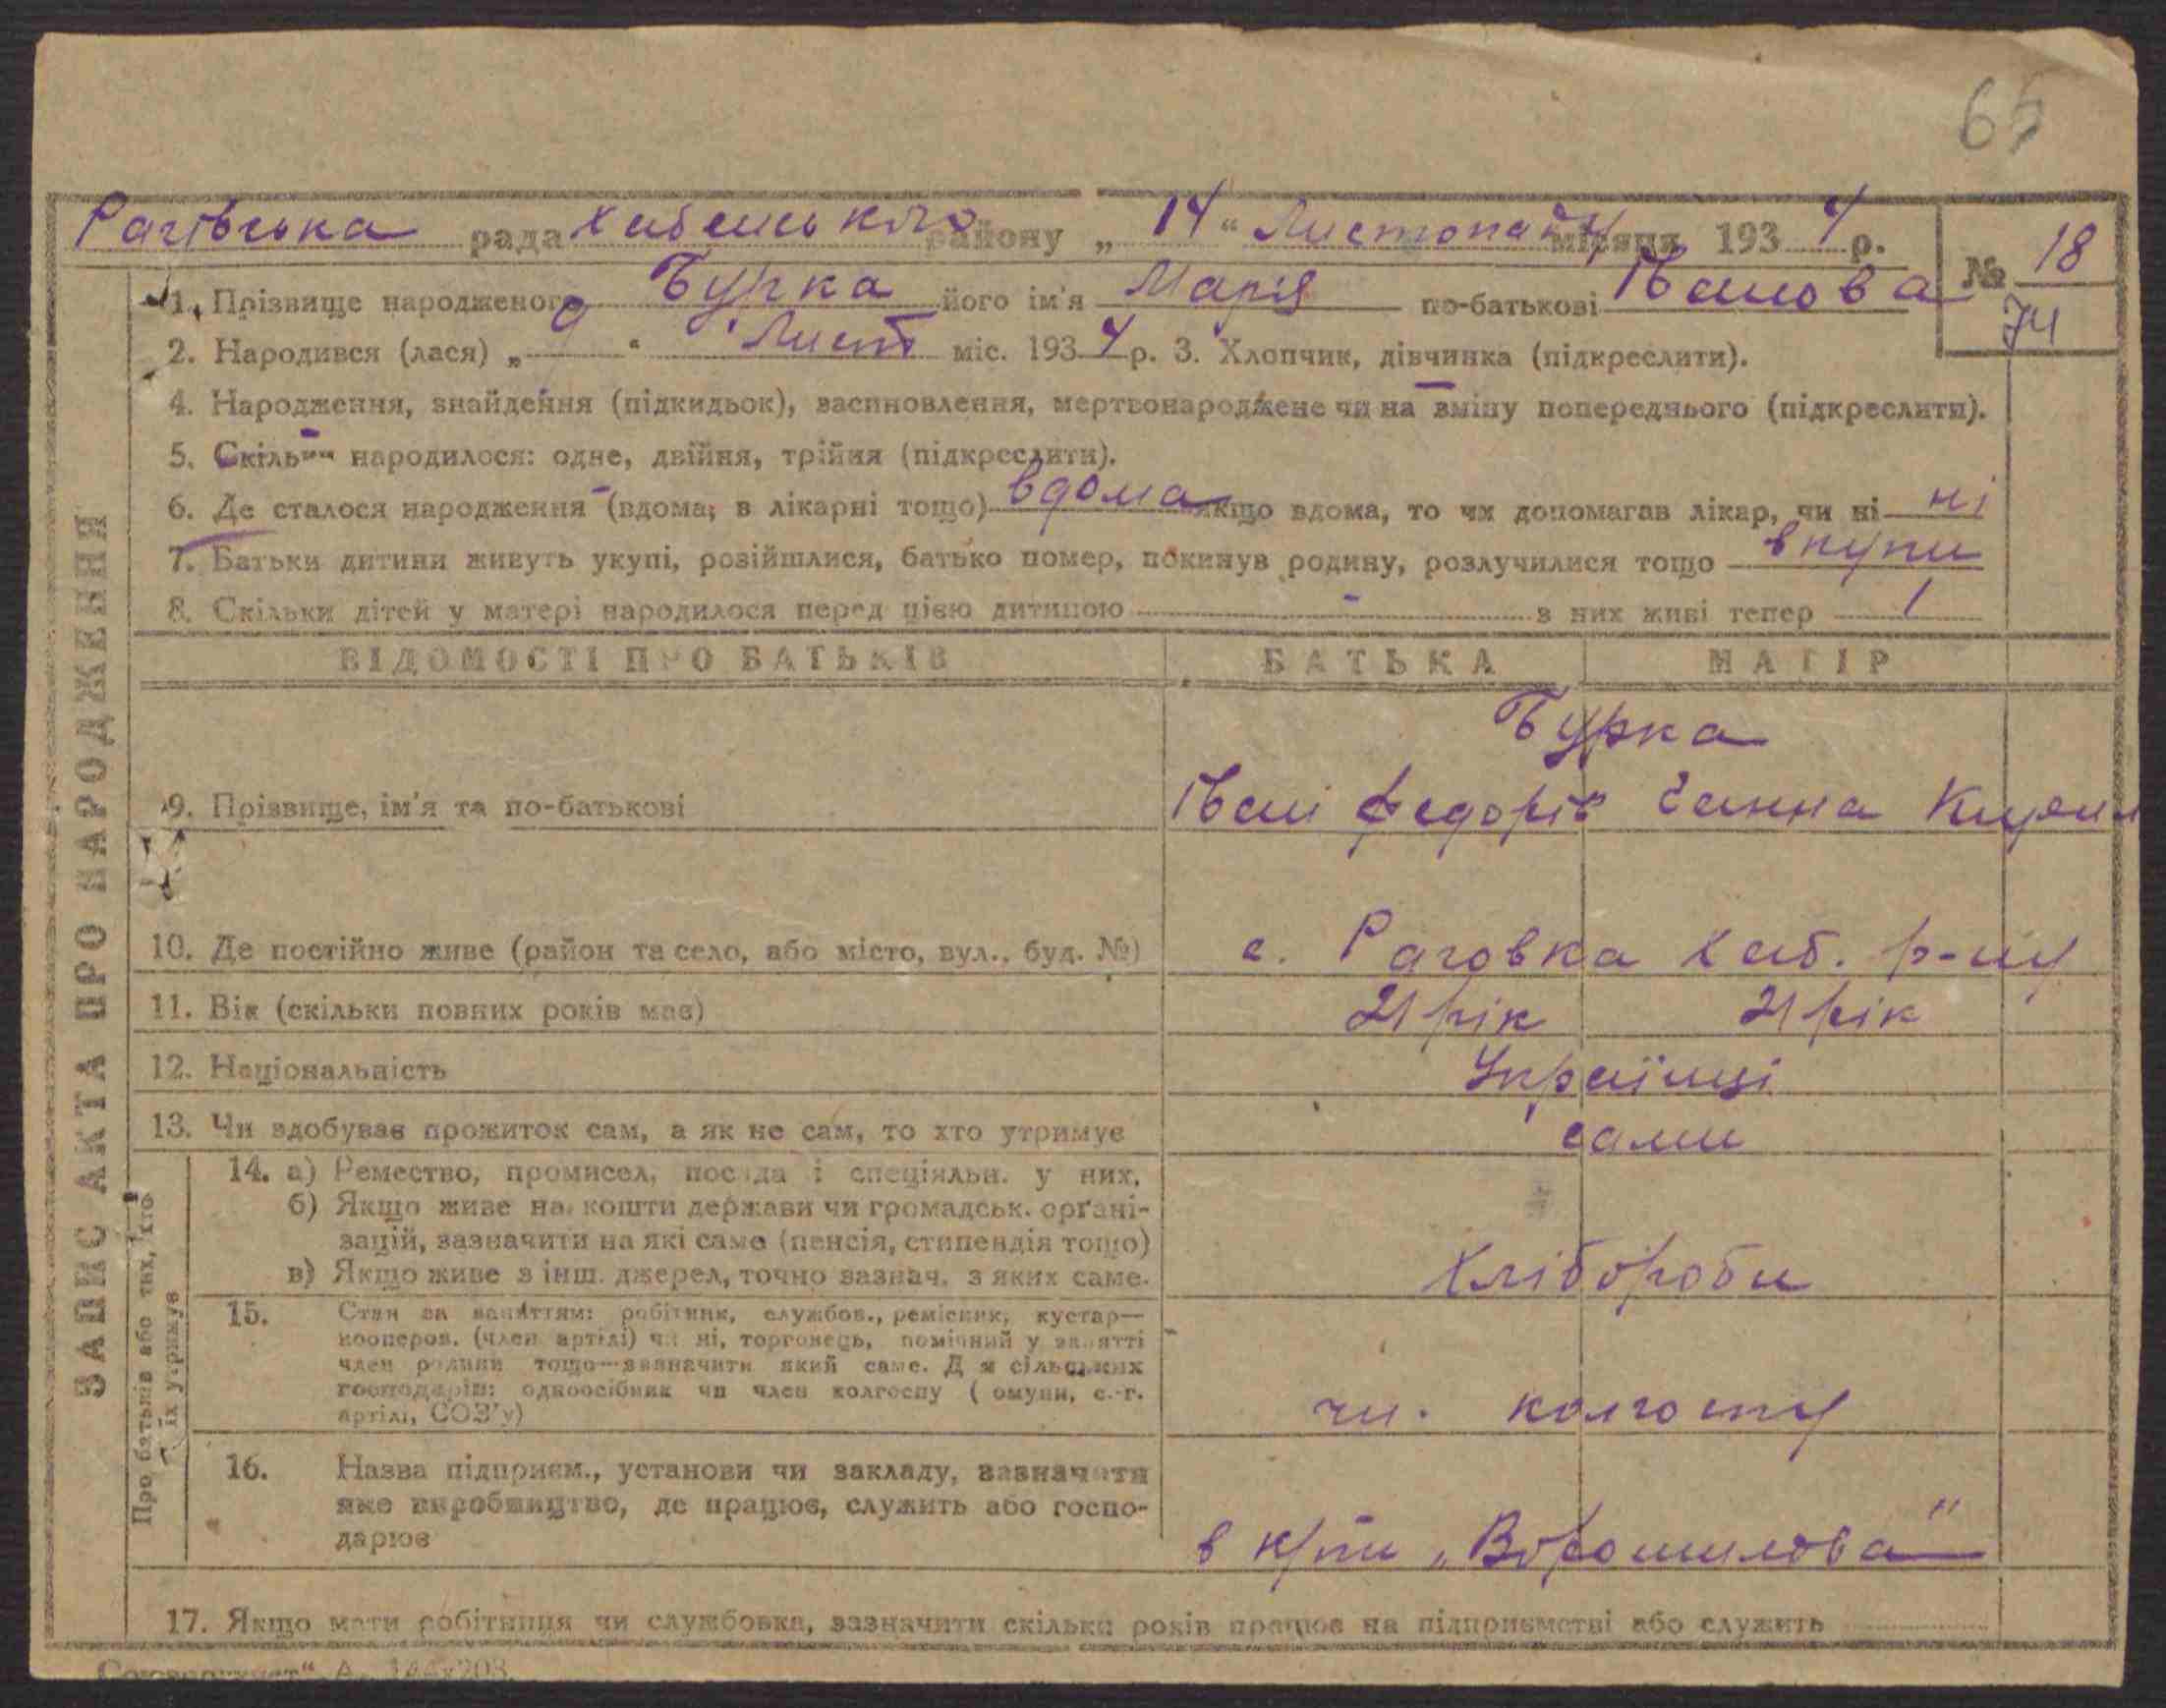 65
Рагівська рада Хабенського району „ 14 “ Листопаду місяця 193 4 р.
№ 18
74
1. Прізвище народженого Бурка його ім'я Марія по-батькові Іванова
2. Народився (лася) „ 9 “ Лист міс. 193 4 р. 3. Хлопчик, дівчинка (підкреслити).
4. Народження, знайдення (підкидьок), засиновлення, мертвонароджене чи на зміну попереднього (підкреслити).
5. Скільки народилося: одне, двійня, трійня (підкреслити).
6. Де сталося народження (вдома; в лікарні тощо) вдома якщо вдома, то чи допомагав лікар, чи ні ні
7. Батьки дитини живуть укупі, розійшлися, батько помер, покинув родину, розлучилися тощо вкупи
8. Скільки дітей у матері народилося перед цією дитиною - з них живі тепер 1
ВІДОМОСТІ ПРО БАТЬКІВ БАТЬКА МАТІР
Бурка
9. Прізвище, ім'я та по-батькові Іван Федорів Ганна
10. Де постійно живе (район та село, або місто, вул., буд. №) с. Раговка Хаб. р-ну
11. Вік (скільки повних років має) 21 рік 21 рік
12. Національність Українці
13. Чи здобуває прожиток сам, а як не сам, то хто утримує сами
14. а) Ремество, промисел, посада і спеціяльн. у них.
б) Якщо живе на кошти держави чи громадськ. орґані-
зацій, зазначити на які саме (пенсія, стипендія тощо)
в) Якщо живе з інш. джерел, точно зазнач. з яких саме. Хлібороби
15. Стан за заняттям: робітник, службов., ремісник, кустар—
кооперов. (член артілі) чи ні, торговець, помічний у занятті
член родини тощо—зазначити який саме. Для сільських
господарів: одноосібник чи член колгоспу (комуни, с.-г.
артілі, СОЗ'у) чл. колгоспу
16. Назва підприєм., установи чи закладу, зазначити
яке виробництво, де працює, служить або госпо-
дарює в к/пи „Ворошилова“
17. Якщо мати робітниця чи службовка, зазначити скільки років працює на підприємстві або служить
ЗАПИС АКТА ПРО НАРОДЖЕННЯ
Про батьків або тих, хто
їх утримує
А. 144х203.